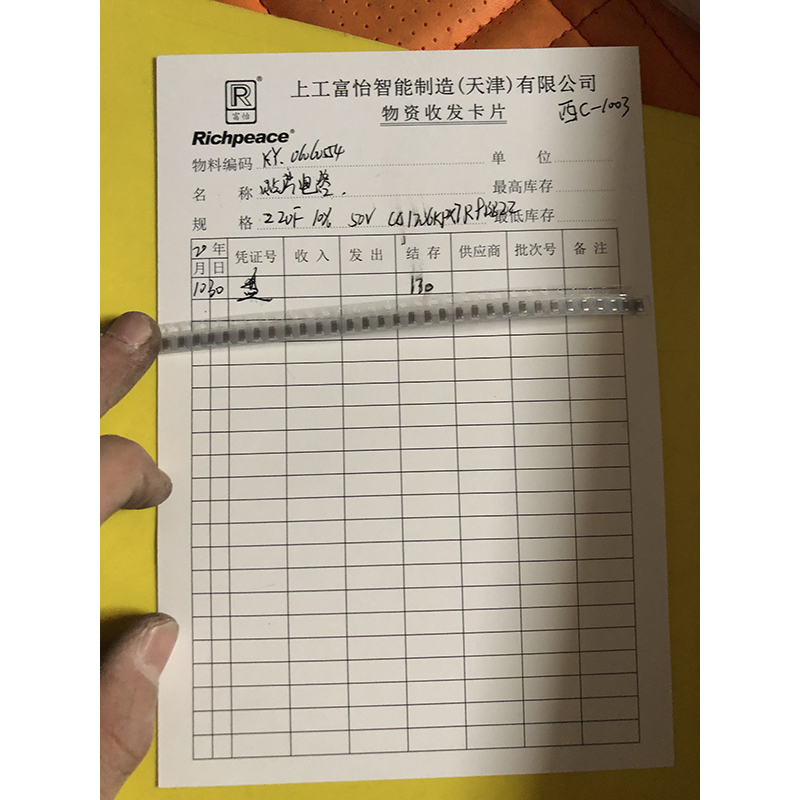 R®
富怡
Richpeace®
上工富怡智能制造(天津)有限公司
物资收发卡片
西C-1003
物料编码 KY.0606054 单 位
名 称 贴片电容. 最高库存
规 格 22uF 10% 50V 最低库存
20 年 凭证号 收入 发出 结存 供应商 批次号 备注
月 日
10 30 盘 130